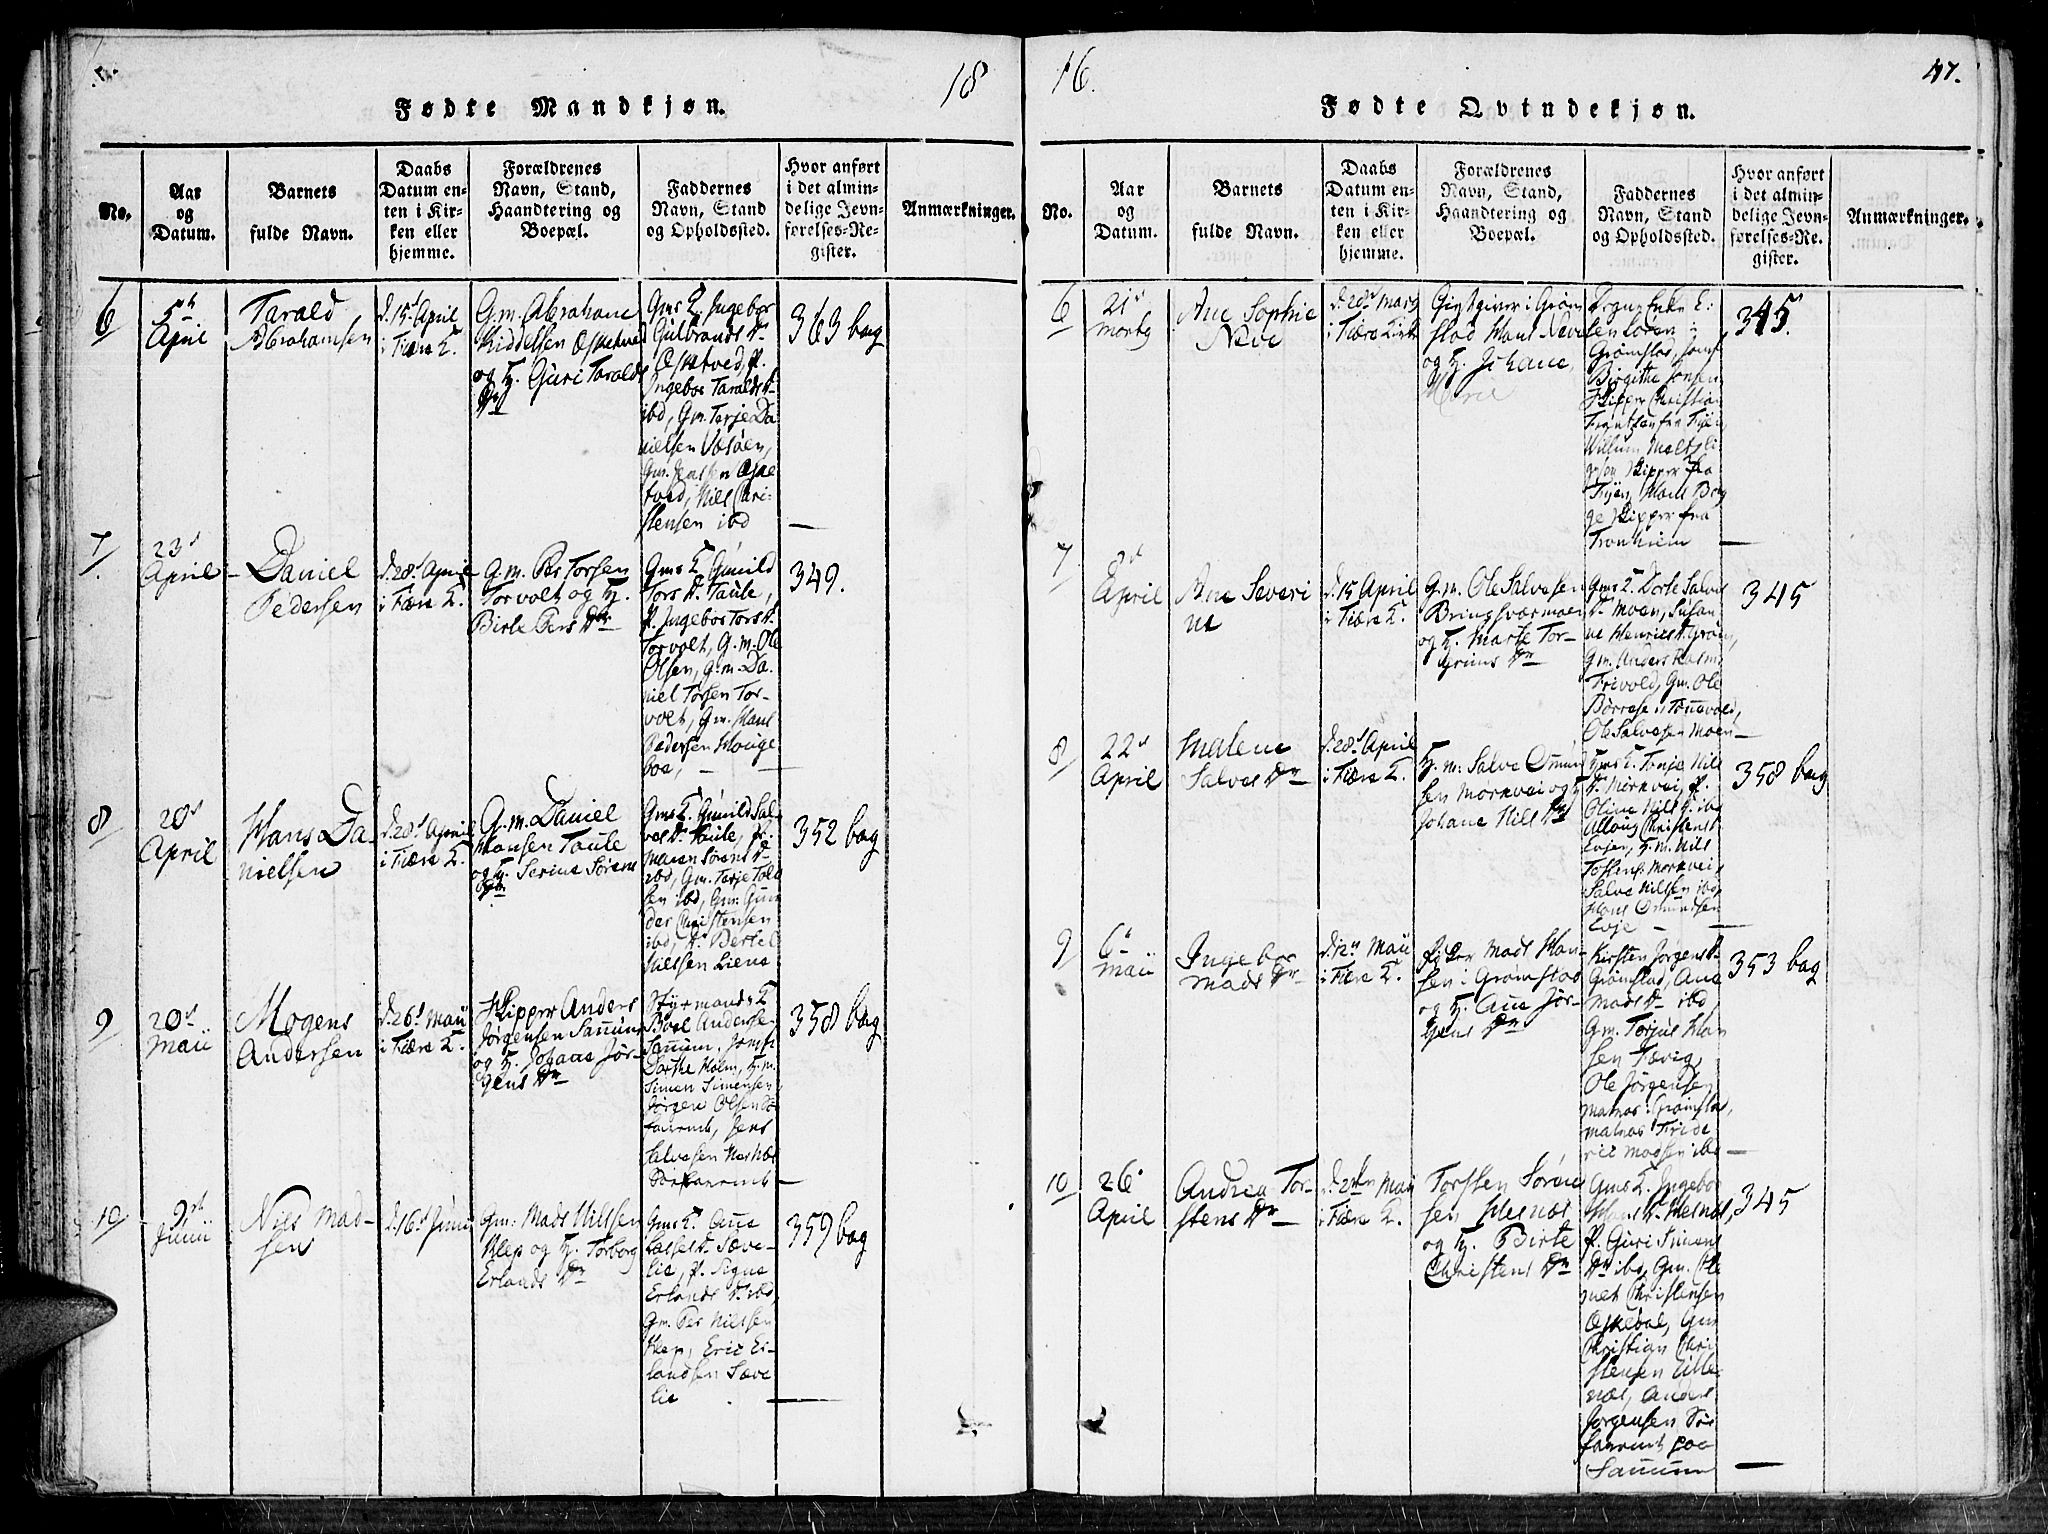 18
16.
47.
Fødte Mandkjøn.
No.
Aar
og
Datum.
Barnets
fulde Navn.
Daabs
Datum en-
ten i Kir-
ken eller
hjemme.
Forældrenes
Navn, Stand,
Haandtering og
Boepæl.
Faddernes
Navn, Stand
og Opholdssted.
Hvor anført
i det almin-
delige Jevn-
førelses-Re-
gister.
Anmærkninger.
6
5th
April
Tarald
Abrahamsen
d. 15d April
i Fiære K.
G.m. Abraham
Kiddelsen Esketved
og H. Guri Taralds
Dr
Gms K. Ingebor
Gulbrands Dr
Esketved, P.
Ingebor Taralds Dr
ibd, Gm. Tarje Da
nielsen Vesøen,
Gm. Jensen Eske
tved, Nils Chri-
stensen ibd
363 bag
7
23d
April
Daniel
Pedersen
d. 28d April
i Fiære K.
G.m. Per Torsen
Torvolt og H.
Birte Pers Dr
Gms K. Gunild
Tors Dr Taule,
P. Ingebor Tors Dr
Torvolt, G.m. Ole
Olsen, G.m. Da-
niel Torsen Tor-
volt, Gm. Hans
Pedersen Houge
boe,
349.
8
28d
April
Hans Da-
nielsen
d. 28d April
i Fiære K.
G.m. Daniel
Hansen Taule
og H. Serine Sørens
Dr
Gms K. Gunild Sal-
ves Dr Taule, P.
Maren Sørens Dr
ibd, Gm. Tarje Tol
sen ibd, Gm. Gun
der Christensen
ibd, Bertel
Nielsen Liene
352 bag
9
20d
Maii
Mogens
Andersen
d. 26d Maii
i Fiære K.
Skipper Anders
Jørgensen Sauum
og H. Johane Jør-
gens Dr
Styrmands K
Boel Anderse
Sauum, Jomf.
Dorthe Holm, H.m.
Simen Simensen
Jørgen Olsen
Jens
Salvesen Hesnes
358 bag
10
9d
Junii
Niels Mad-
sen
d. 16d Junii
Gm: Mads Nilssen
Klep og H. Torborg
Erlands Dr
Gms K. Ane
Lasses Dr Sæve-
lie, P. Signe
Erlands Dr ibd,
Gm. Per Nielsen
Klep, Eric Er-
landsen Sæve
lie
359 bag
Fødte Qvindekjøn.
No.
Aar
og
Datum.
Barnets
fulde Navn.
Daabs
Datum en-
ten i Kir-
ken eller
hjemme.
Forældrenes
Navn, Stand,
Haandtering og
Boepæl.
Faddernes
Navn, Stand
og Opholdssted.
Hvor anført
i det almin-
delige Jevn-
førelses-Re-
gister.
Anmærkninger.
6
21d
Marts
Ane Sophie
Neve
d. 28d Marts
i Fiære Kirke
Giestgiver i Grøm
stad Hans Neve
og H. Johane
Marie
Enke E:
len
Grømstad, Jomf.
Birgithe Jensen
Skipper Christian
Frantsen fra
Willum
sen Skipper fra
Hans Bag
ge Skipper fra
Tronhiem
345.
7
April
Ane Severi
ne
d. 15 April
i Fiære K.
G.m. Ole Salvesen
Bringsværmoen
og H. Marte Tor-
grims Dr
Gms K. Dorte Salves
Dr Moen, Susan-
ne Henrics Dr Grøm,
G.m. Anders Rasm:
Frivold, Gm. Ole
Børresen Tønnevold,
Ole Salvesen Moen
345
8
22d
April
Malene
Salves Dr
d. 28d April
i Fiære K.
H.m. Salve Omun
sen Morkvei og H
Johane Nils Dr
Hms K. Tonje Nils
Dr Morkvei, P.
Oline Nils Dr ibd
Alloug Christens D
Evje, H.m. Nils
Tostens: Morkvei,
Salve Nilsen ibd,
Hans Omundsen
Evje
358 bag
9
6d
Maii
Ingebor
Mads Dr
d. 12d Maii
i Fiære K.
Skipper Mads Han-
sen i Grømstad
og H. Ane Jør-
gens Dr
Kirsten Jørgens Dr
Grømstad, Ane
Mads Dr ibd,
Gm. Torjus Han
sen Fævig,
Ole Jørgensen
matros i Grømsta,
matros Fride
ric Madsen ibd
353 bag
10
26d
April
Andrea Tor-
stens Dr
Maii
i Fiære K.
Torsten Søren
sen Hesnes
og H. Birte
Christens Dr
Gms K. Ingebor
Hans Dr Hesnes,
P. Guri Simens
Dr ibd, Gm. Ole
Christensen
Eskedal, Gm
Christian Chri
stensen Lille
næs, Anders
Jørgensen
paa
Sauum
345